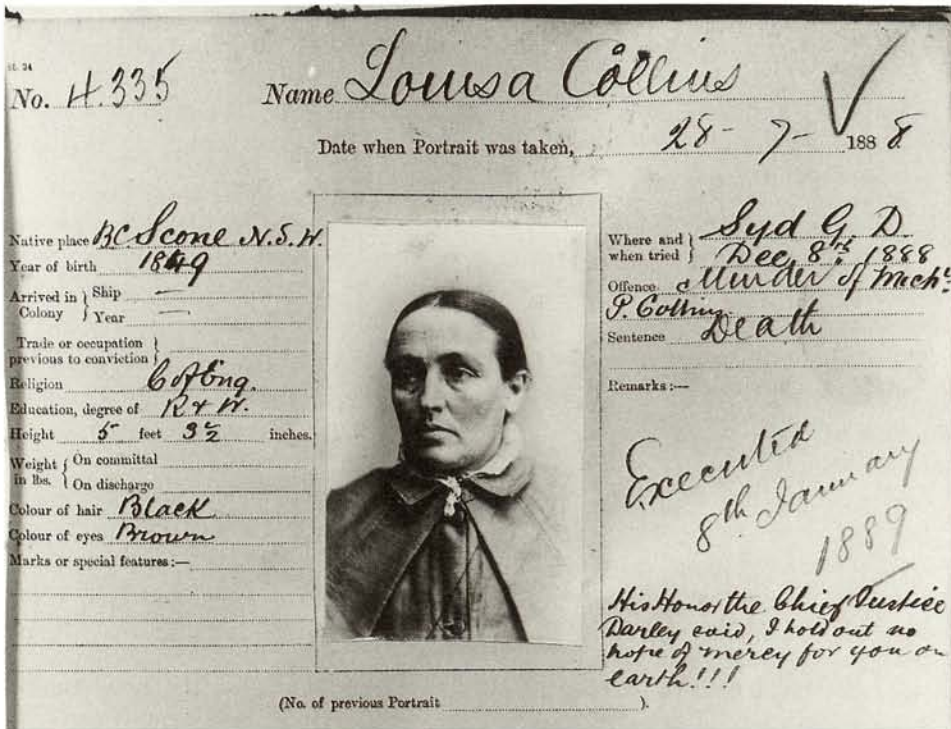 SL. 24
No. 4.335
Name Louisa Collins
Date when Portrait was taken, 28 - 7 - 1888
Native place BC. Scone N.S.W.
Year of birth 1849
Arrived in Colony { Ship —
Year —
Trade or occupation previous to conviction }
Religion C of Eng.
Education, degree of R & W.
Height 5 feet 3½ inches.
Weight in lbs. { On committal
On discharge
Colour of hair Black
Colour of eyes Brown
Marks or special features:—
Where and when tried } Syd G. D.
Dec. 8th 1888
Offence Murder of Michl.
P. Collins
Sentence Death
Remarks:—
Executed
8th January
1889
His Honor the Chief Justice
Darley said, I hold out no
hope of mercy for you on
earth!!!
(No. of previous Portrait ).